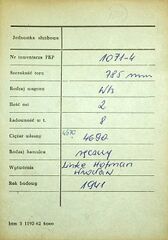 Jednostka służbowa
Nr inwentarza PKP 1071-4
Szerokość toru 785 mm
Rodzaj wagonu Wh
Ilość osi 2
Ładowność w t. 8
Ciężar własny 4690 4690
Rodzaj hamulca ręczny
Wytwórnia Linke Hofman Wrocław
Rok budowy 1941